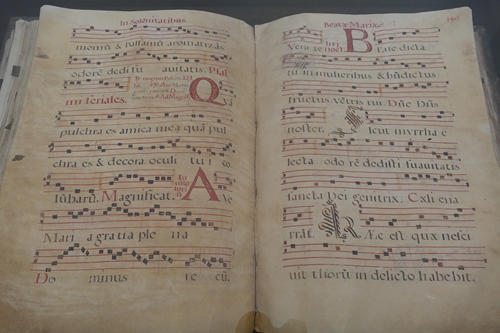 In Solennitatibus
momū & balsamū aromatizās
odorē dedi tū suavitatis. Psal
mi feriales.
Q
pulchra es amica mea quā pul
chra es & decora oculi tui co
lūbarū. Magnificat. A Ve
Mari a gratia ple na
Do minus te cū.
Beatæ Mariæ.
B Ene dicta
tu in mulieribus & bn̄dictus
fructus vētris tui. Dn̄e Dn̄s
noster. Sicut myrrha e
lecta odo rē dedisti suavitatis
sancta Dei genitrix. Cæli ena
rrāt. Hæc est quæ nesci
vit thorū in delicto habebit.